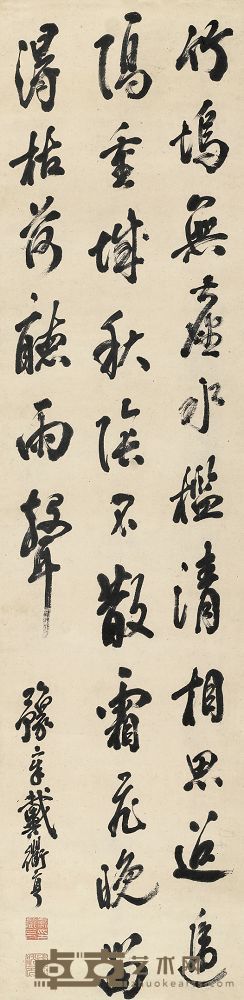 竹塢無塵水檻清相思迢遞
隔重城秋陰不散霜飛晚留
得枯荷聽雨聲
豫章戴衢亨
卓克艺术网